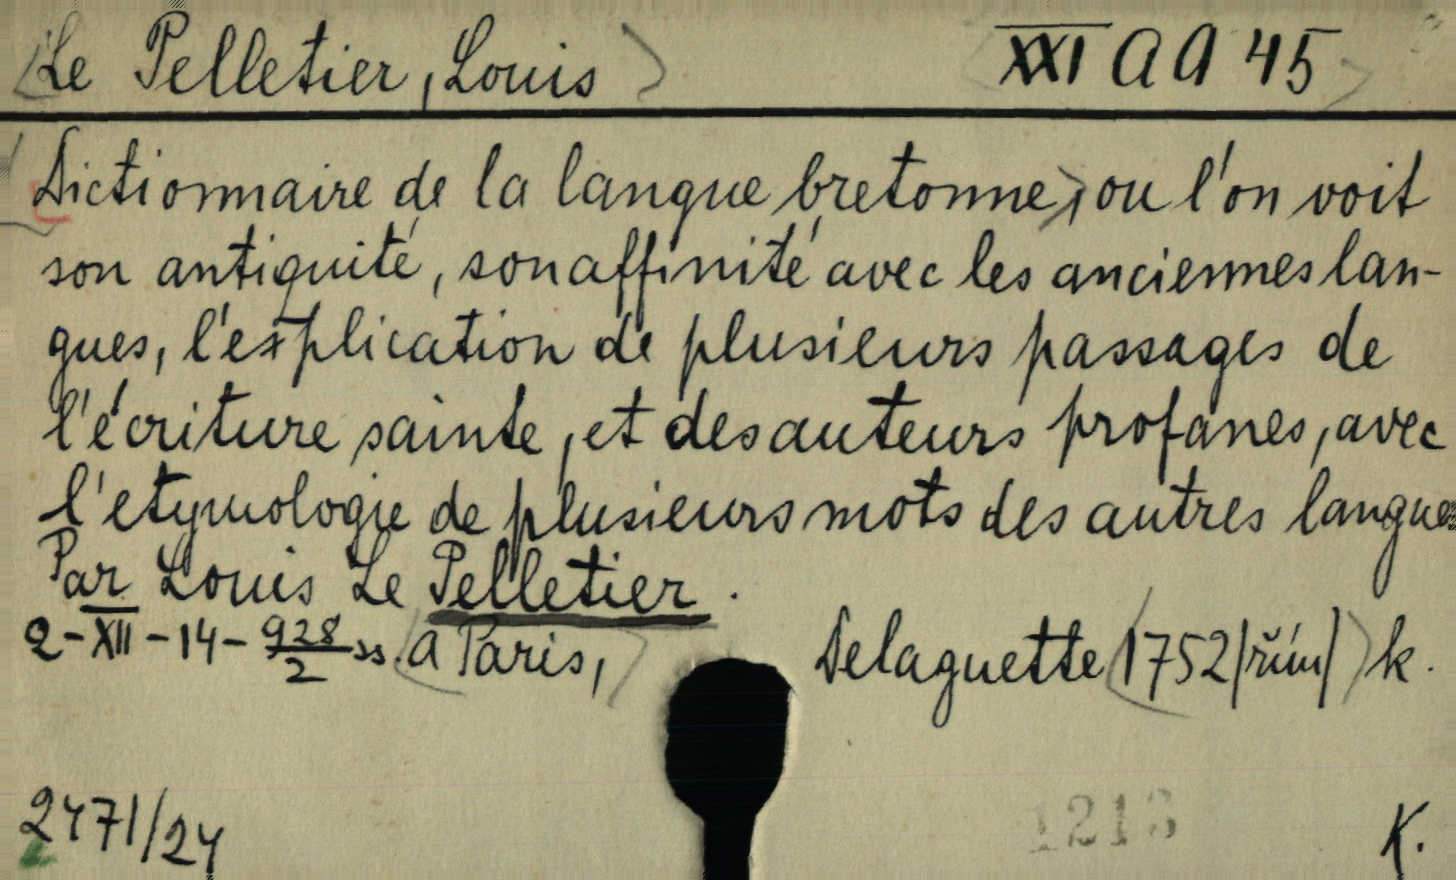 Le Pelletier, Louis
XXI A A 45
Dictionnaire de la langue bretonne, ou l'on voit
son antiquité, son affinité avec les anciennes lan-
gues, l'explication de plusieurs passages de
l'écriture sainte, et des auteurs profanes, avec
l'etymologie de plusieurs mots des autres langues
Par Louis Le Pelletier.
2-XII-14-928/2 ss. A Paris, Delaguette 1752/řím/ k.
2471/24
1213
K.